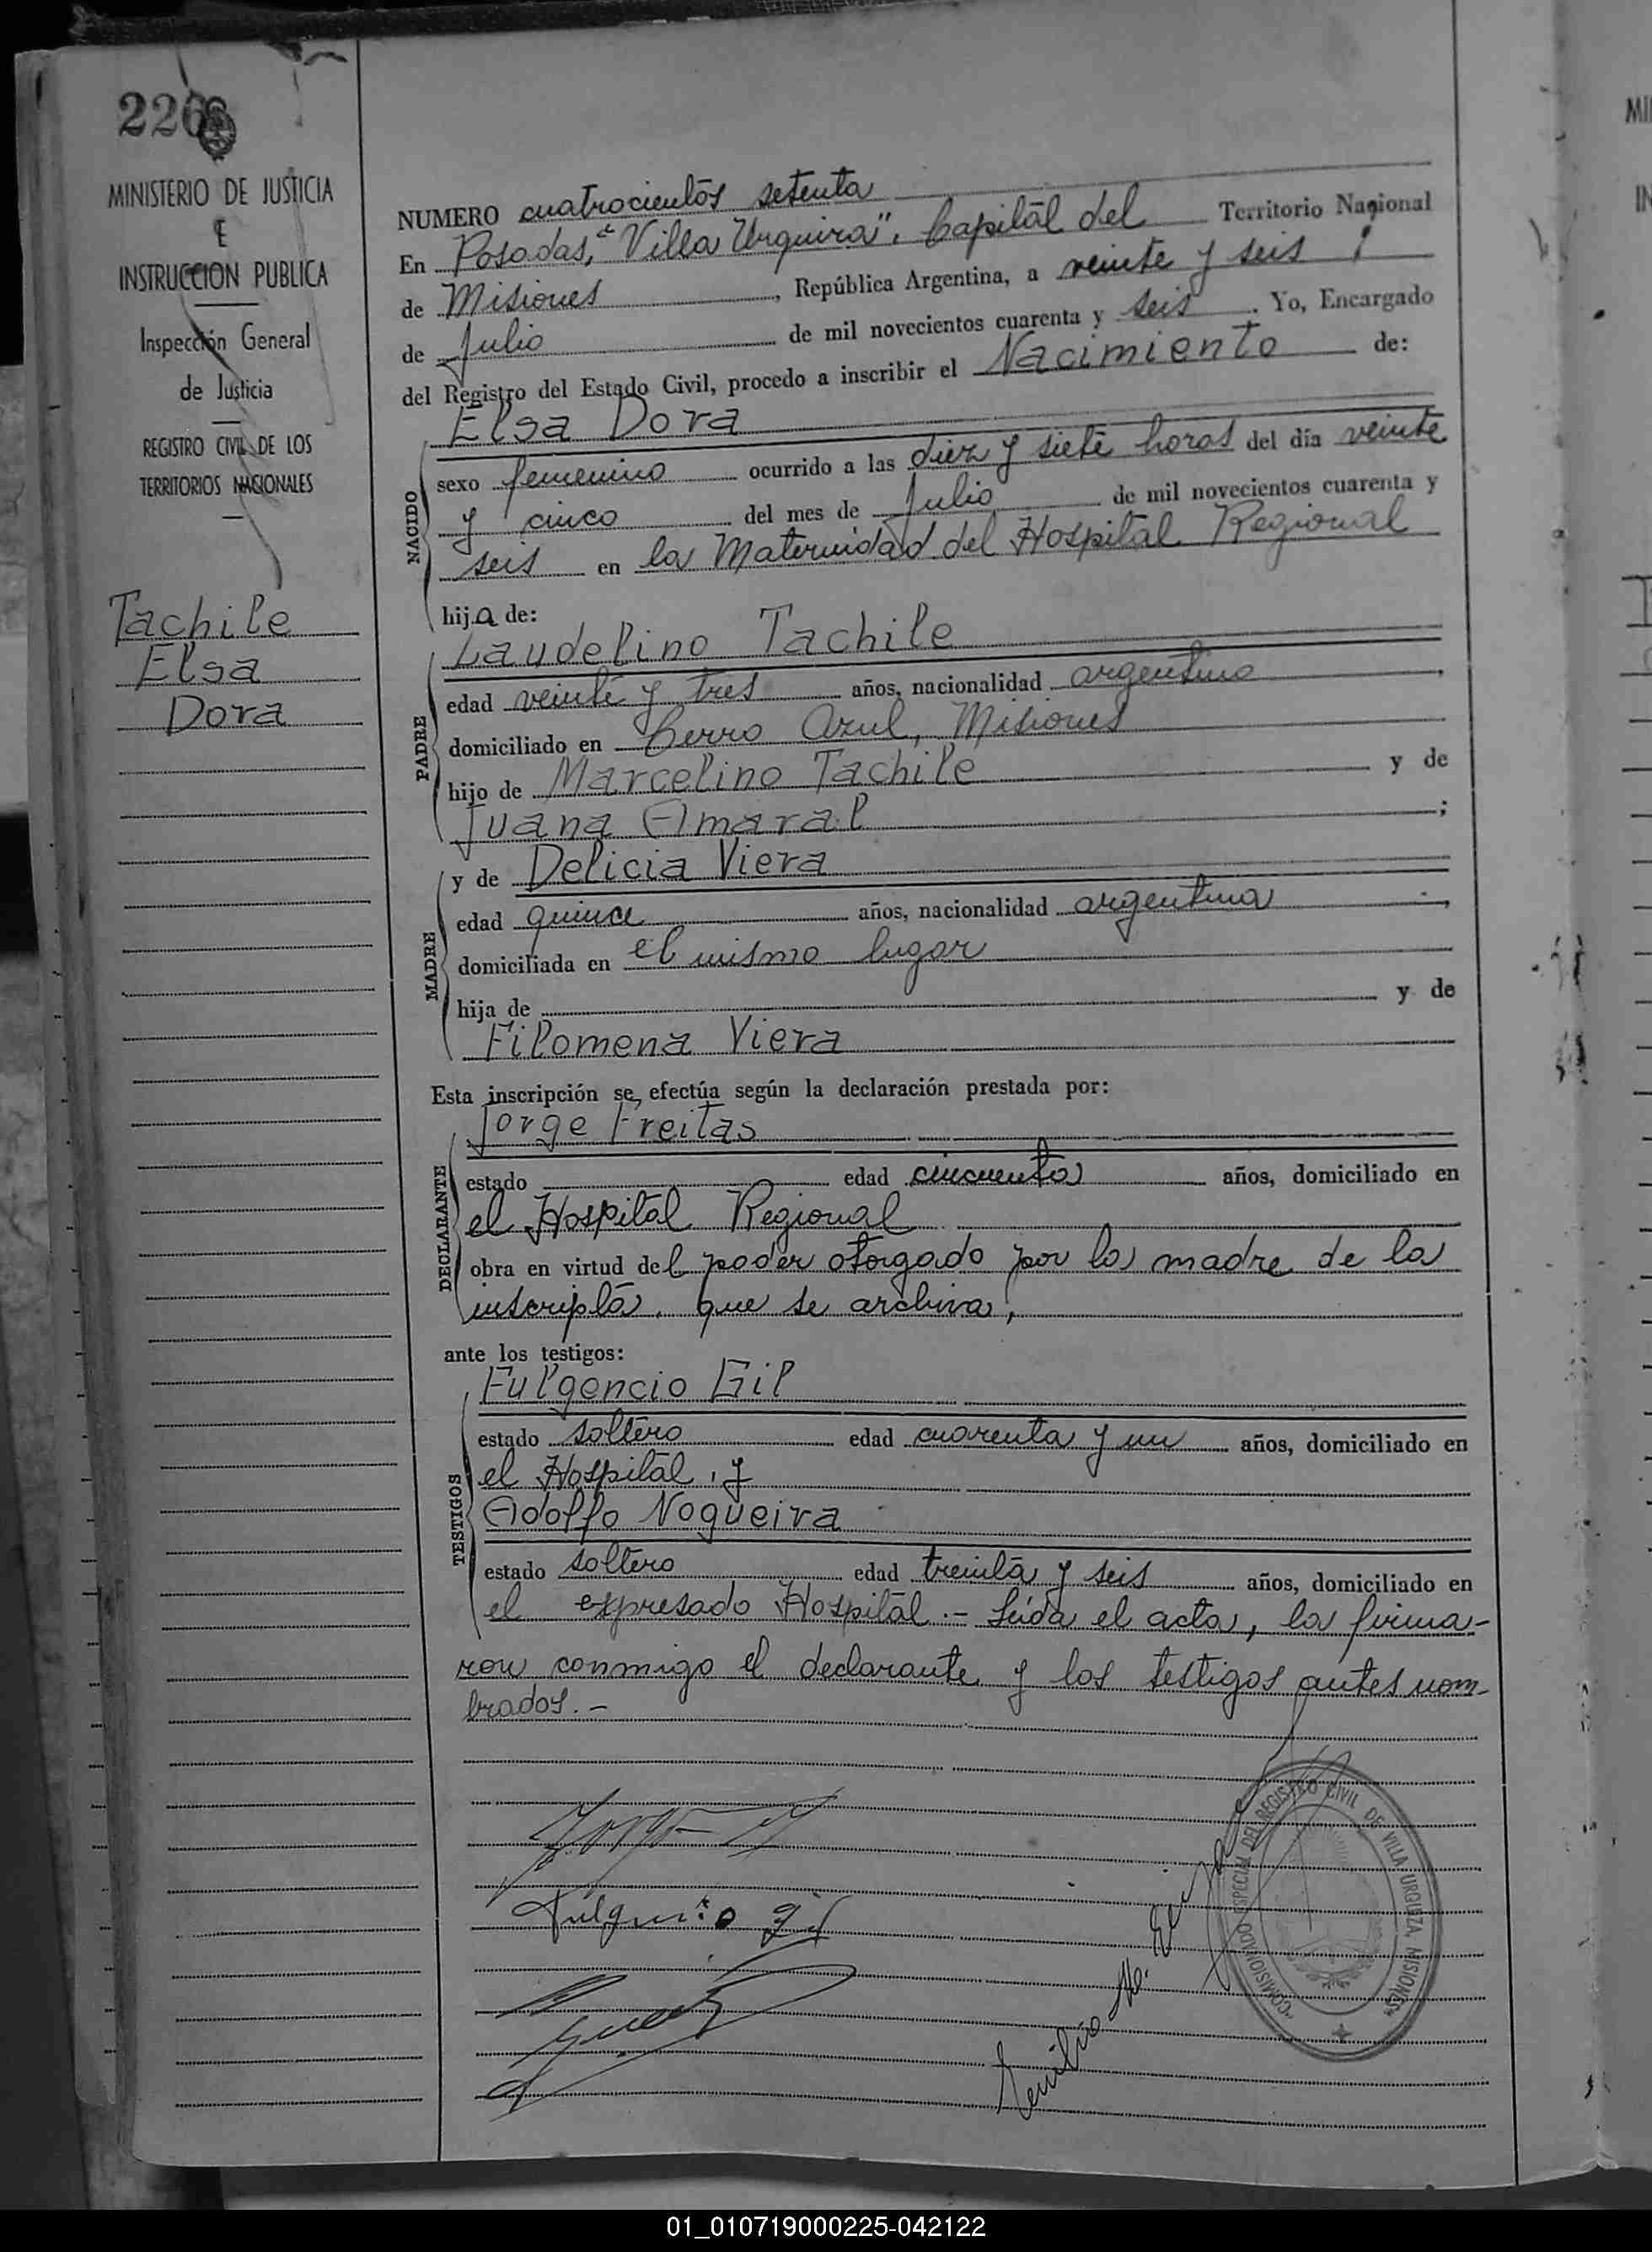 226
MINISTERIO DE JUSTICIA
E
INSTRUCCION PUBLICA
Inspección General
de Justicia
REGISTRO CIVIL DE LOS
TERRITORIOS NACIONALES
Tachile
Elsa
Dora
NUMERO cuatrocientos setenta
En Posadas, "Villa Urquiza", Capital del Territorio Nacional
de Misiones, República Argentina, a veinte y seis
de Julio de mil novecientos cuarenta y seis. Yo, Encargado
del Registro del Estado Civil, procedo a inscribir el Nacimiento de:
NACIDO
Elsa Dora
sexo femenino ocurrido a las diez y siete horas del día veinte
y cinco del mes de Julio de mil novecientos cuarenta y
seis en la Maternidad del Hospital Regional
hija de:
PADRE
Laudelino Tachile
edad veinte y tres años, nacionalidad argentino,
domiciliado en Cerro Azul, Misiones
hijo de Marcelino Tachile y de
Juana Amaral;
MADRE
y de Delicia Viera
edad quince años, nacionalidad argentina,
domiciliada en el mismo lugar
hija de y de
Filomena Viera
Esta inscripción se efectúa según la declaración prestada por:
DECLARANTE
Jorge Freitas
estado edad cincuenta años, domiciliado en
el Hospital Regional
obra en virtud del poder otorgado por la madre de la
inscripta, que se archiva,
ante los testigos:
TESTIGOS
Fulgencio Gil
estado soltero edad cuarenta y un años, domiciliado en
el Hospital, y
Adolfo Nogueira
estado soltero edad treinta y seis años, domiciliado en
el expresado Hospital.- Leída el acta, la firma-
ron conmigo el declarante y los testigos antes nom-
brados.-
Fulgencio Gil
Emilio M.
"COMISIONADO ESPECIAL DEL REGISTRO CIVIL DE VILLA URQUIZA, MISIONES"
01_010719000225-042122